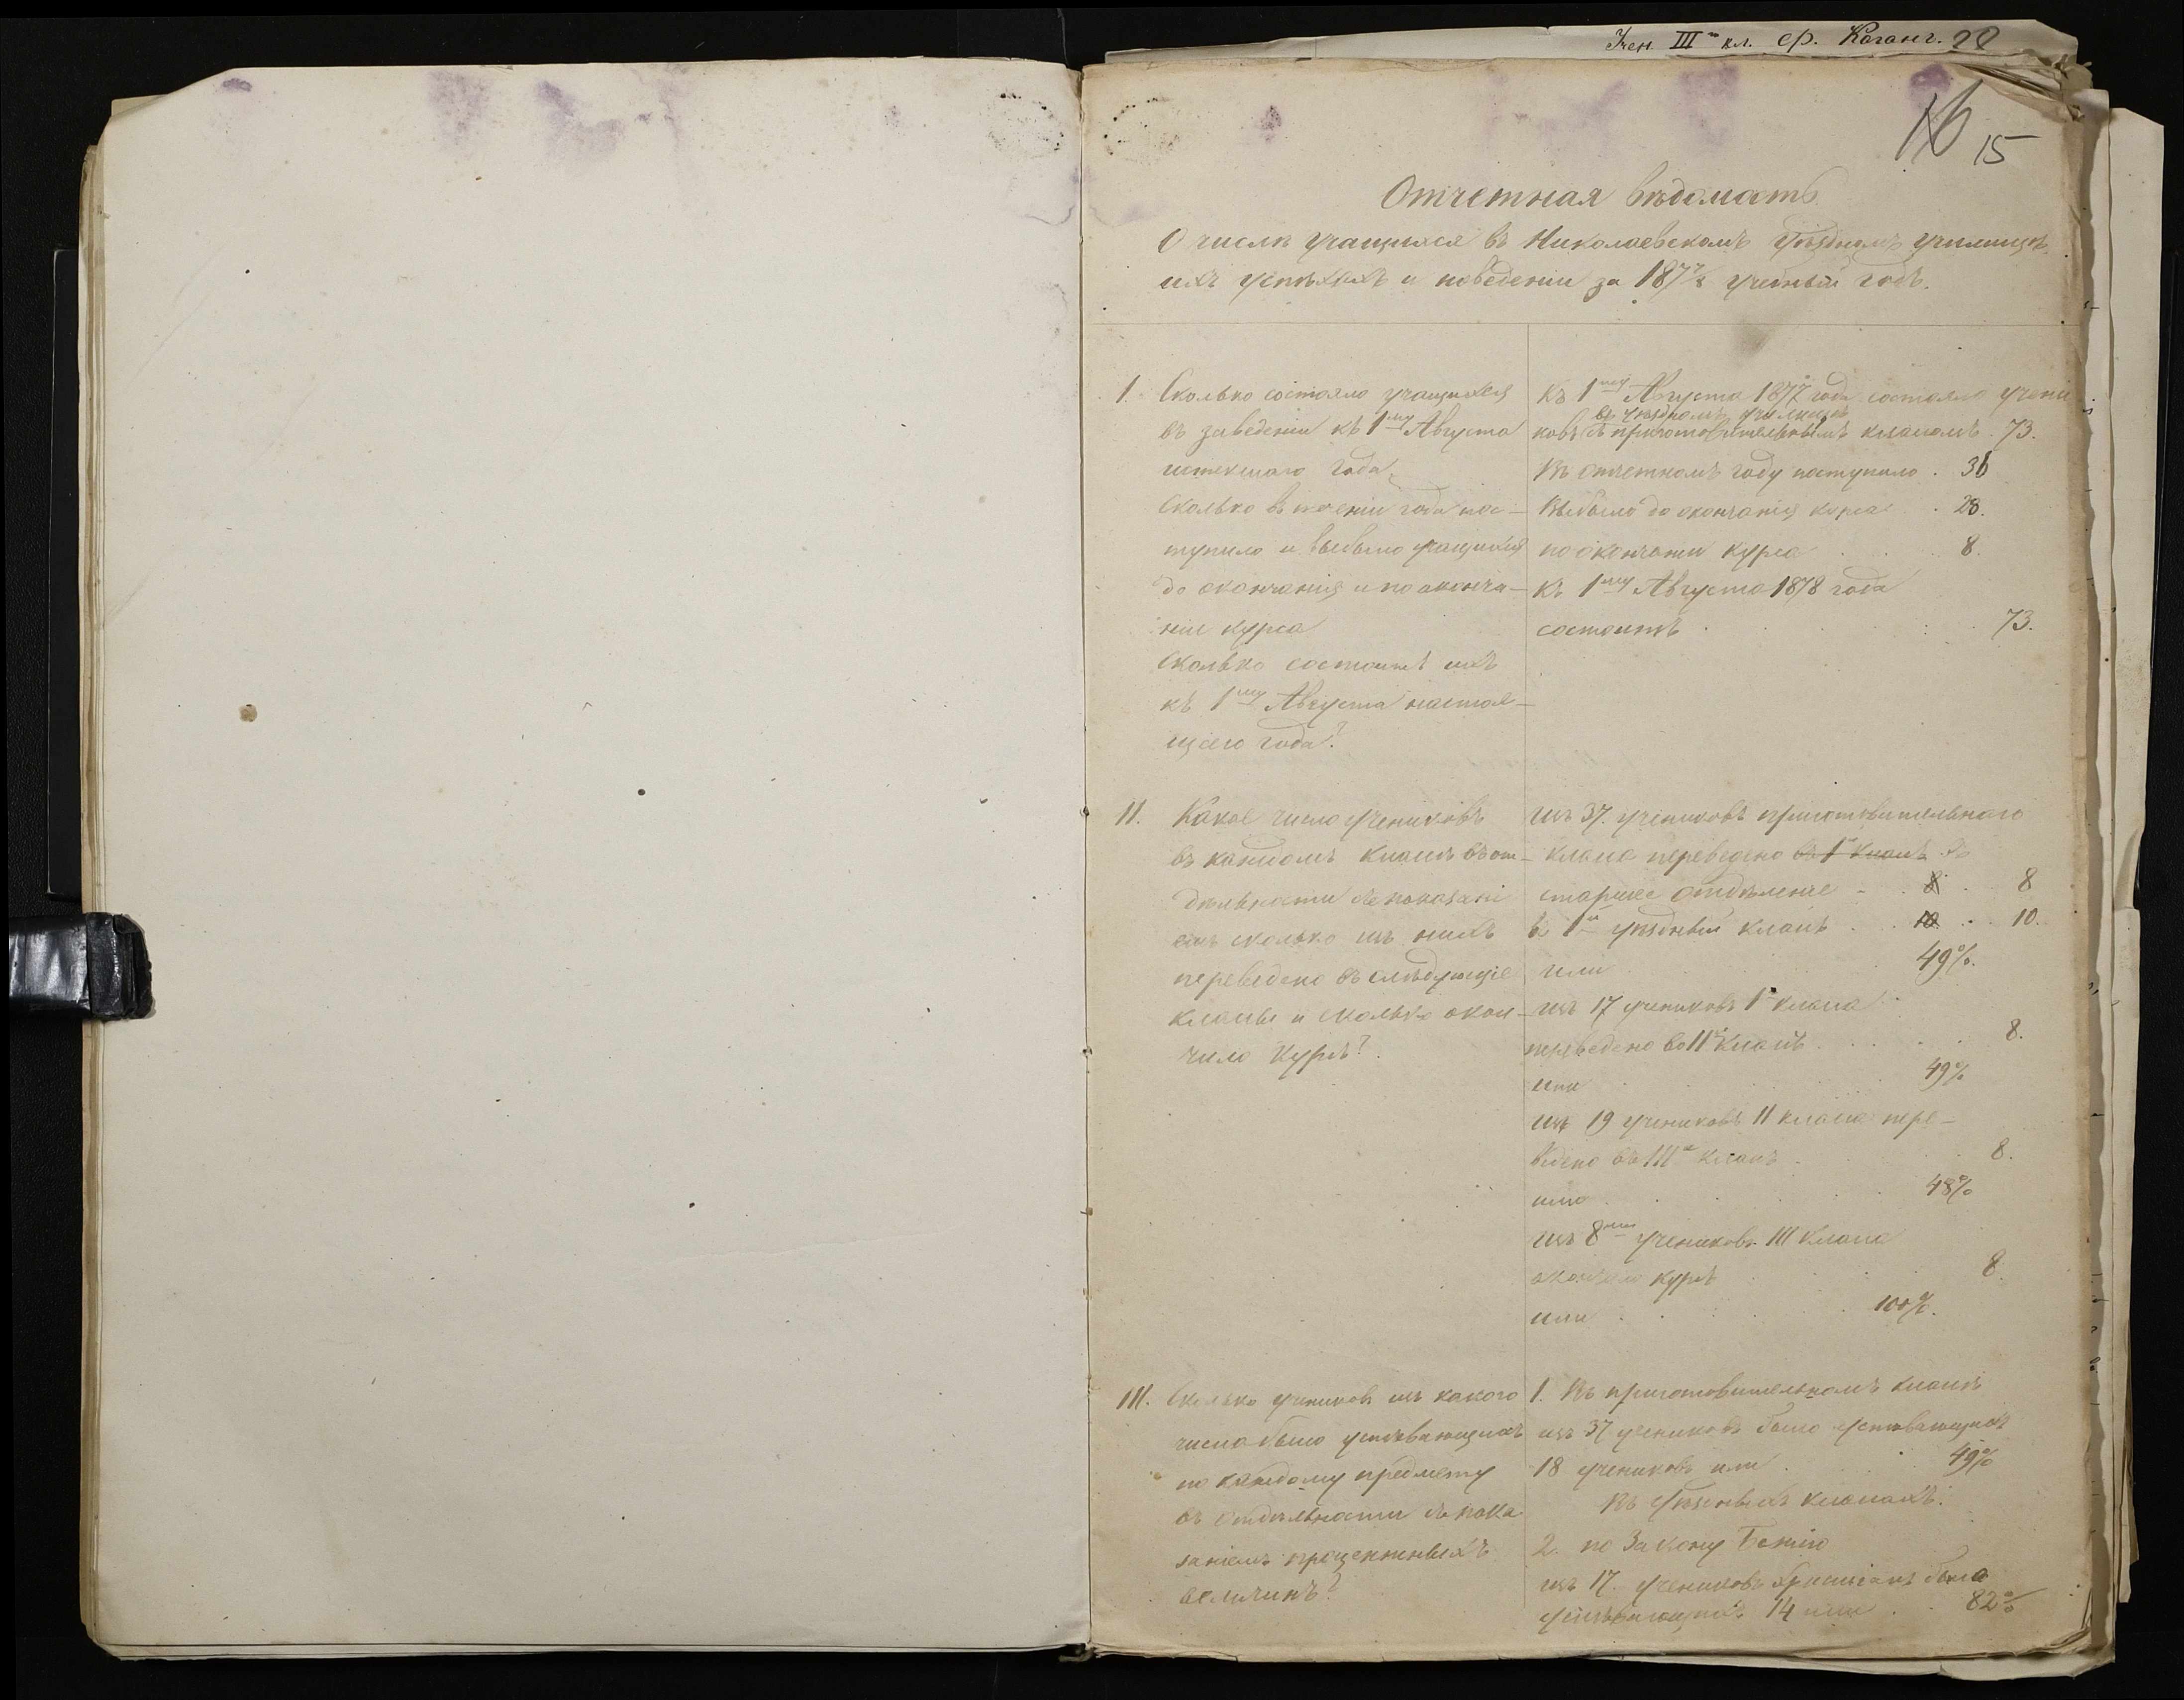 Учен. III го кл. Ф. Коганъ. 20
16 15
Отчетная вѣдомость
О числѣ учащихся въ Николаевскомъ уѣздномъ училищѣ,
ихъ успѣхахъ и поведеніи за 1877/8 учебный годъ.
1. Сколько состояло учащихся
въ заведеніи къ 1му Августа
истекшаго года,
Сколько въ теченіи года пос-
тупило и выбыло учащихся
до окончанія и по оконча-
ніи курса
Сколько состоитъ ихъ
къ 1му Августа настоя-
щаго года?
Къ 1му Августа 1877 года состояло учени
въ уѣздномъ училищѣ
ковъ съ приготовительнымъ класомъ. 73.
Въ отчетномъ году поступило . 36
Выбыло до окончанія курса . 28.
по окончаніи курса . . . 8.
Къ 1му Августа 1878 года
состоитъ . . . 73.
II. Какое число учениковъ
въ каждомъ класѣ въ от-
дѣльности съ показані
емъ сколько изъ нихъ
переведено въ слѣдующіе
класы и сколько окон-
чило курсъ?
изъ 37 учениковъ приготовительнаго
класа переведено въ 1й класъ въ
старшее отдѣленіе . . 8 . 8
въ 1й уѣздный класъ . . 10 . 10.
или 49%.
изъ 17 учениковъ 1го класа
переведено во II й класъ . . . 8.
или . . . 49%
изъ 19 учениковъ II класа пере-
ведено въ III й класъ . . . 8.
или . . . 48%
изъ 8ми учениковъ III класа
окончило курсъ . . . 8.
или . . . 100%.
III. Сколько учениковъ изъ какого
числа было успѣвающихъ
по каждому предмету
въ отдѣльности съ пока
заніемъ процентныхъ
величинъ?
1. Въ приготовительномъ класѣ
изъ 37 учениковъ было успѣвающихъ
18 учениковъ или . . 49%
Въ уѣздныхъ класахъ.
2. по Закону Божію
изъ 17 учениковъ христіанъ было
успѣвающихъ 14 или . . 82%